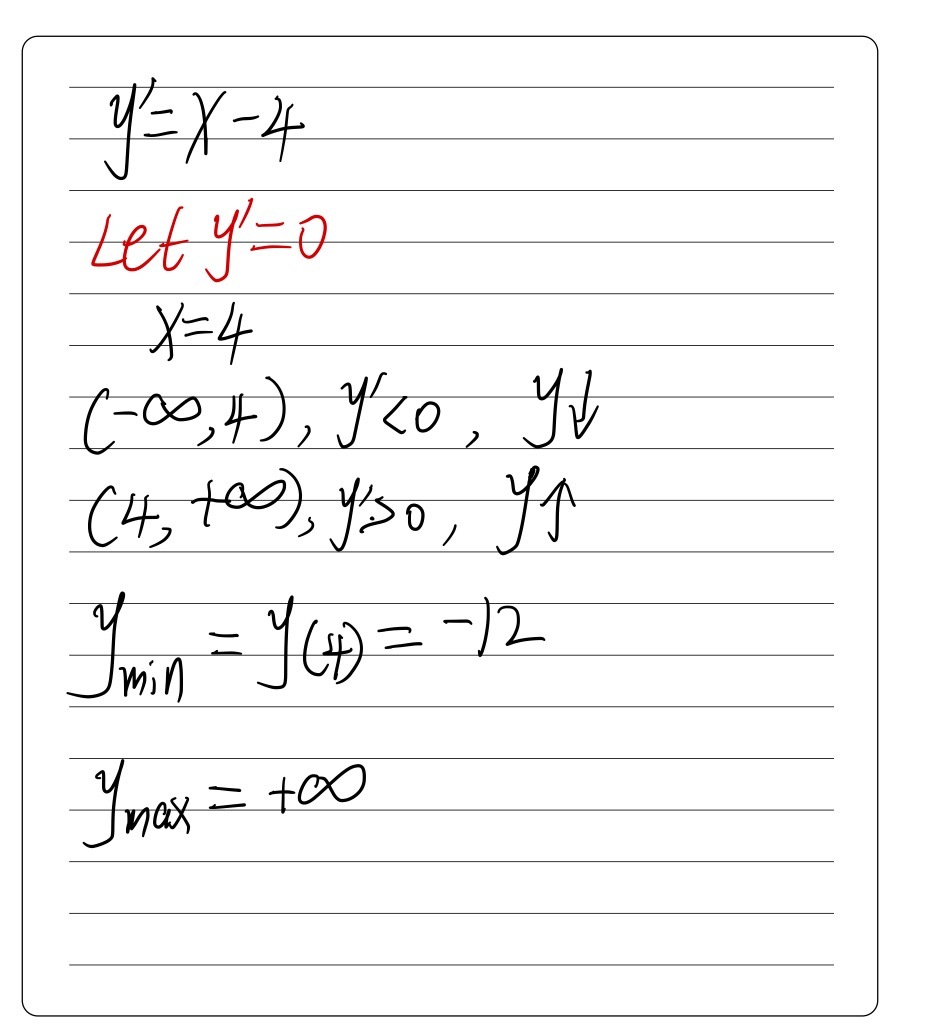 y'=x-4
Let y'=0
x=4
(-∞,4), y'<0, y↓
(4,+∞), y'>0, y↑
y_min = y(4) = -12
y_max = +∞